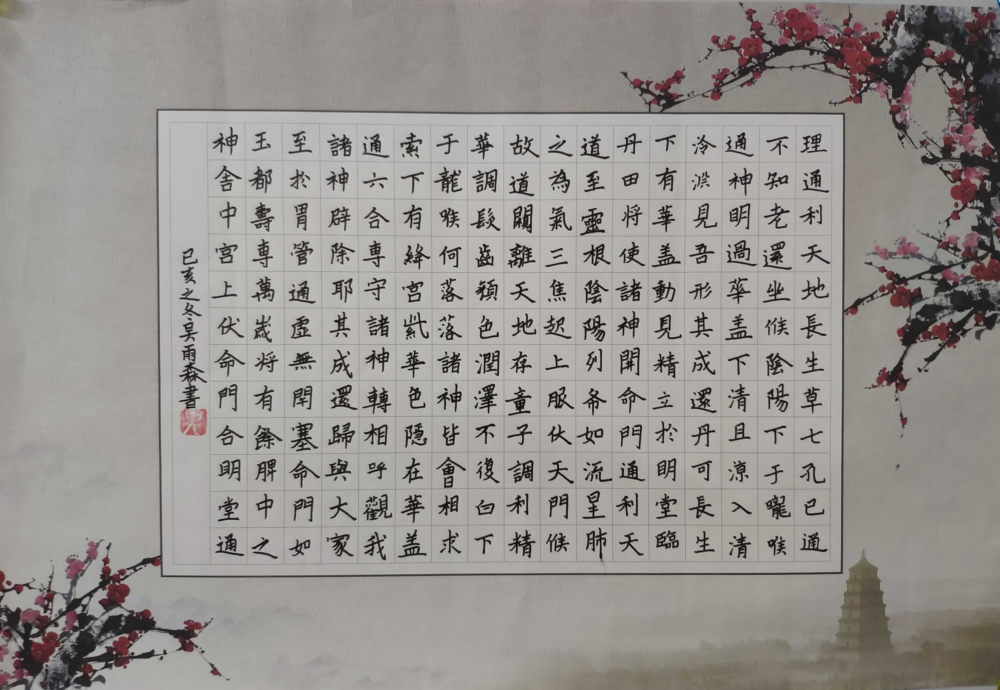 理通利天地長生草七孔已通
不知老還坐候陰陽下于嚨喉
通神明過華盖下清且涼入清
泠渁見吾形其成還丹可長生
下有華盖動見精立於明堂臨
丹田将使諸神開命門通利天
道至靈根陰陽列布如流星肺
之為氣三焦起上服伏天門候
故道闚離天地存童子調利精
華調髮齒顏色潤澤不復白下
于龍喉何落落諸神皆會相求
索下有絳宮紫華色隱在華盖
通六合專守諸神轉相呼觀我
諸神辟除耶其成還歸與大家
至於胃管通虛無閉塞命門如
玉都壽專萬歲将有餘脾中之
神舍中宮上伏命門合明堂通
己亥之冬吴雨森書